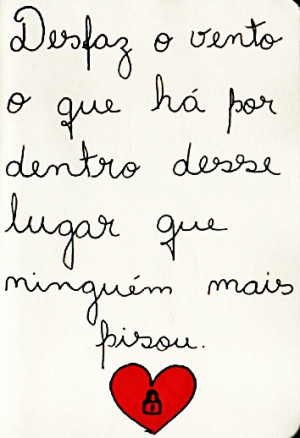 Desfaz o vento
o que há por
dentro desse
lugar que
ninguém mais
pisou.